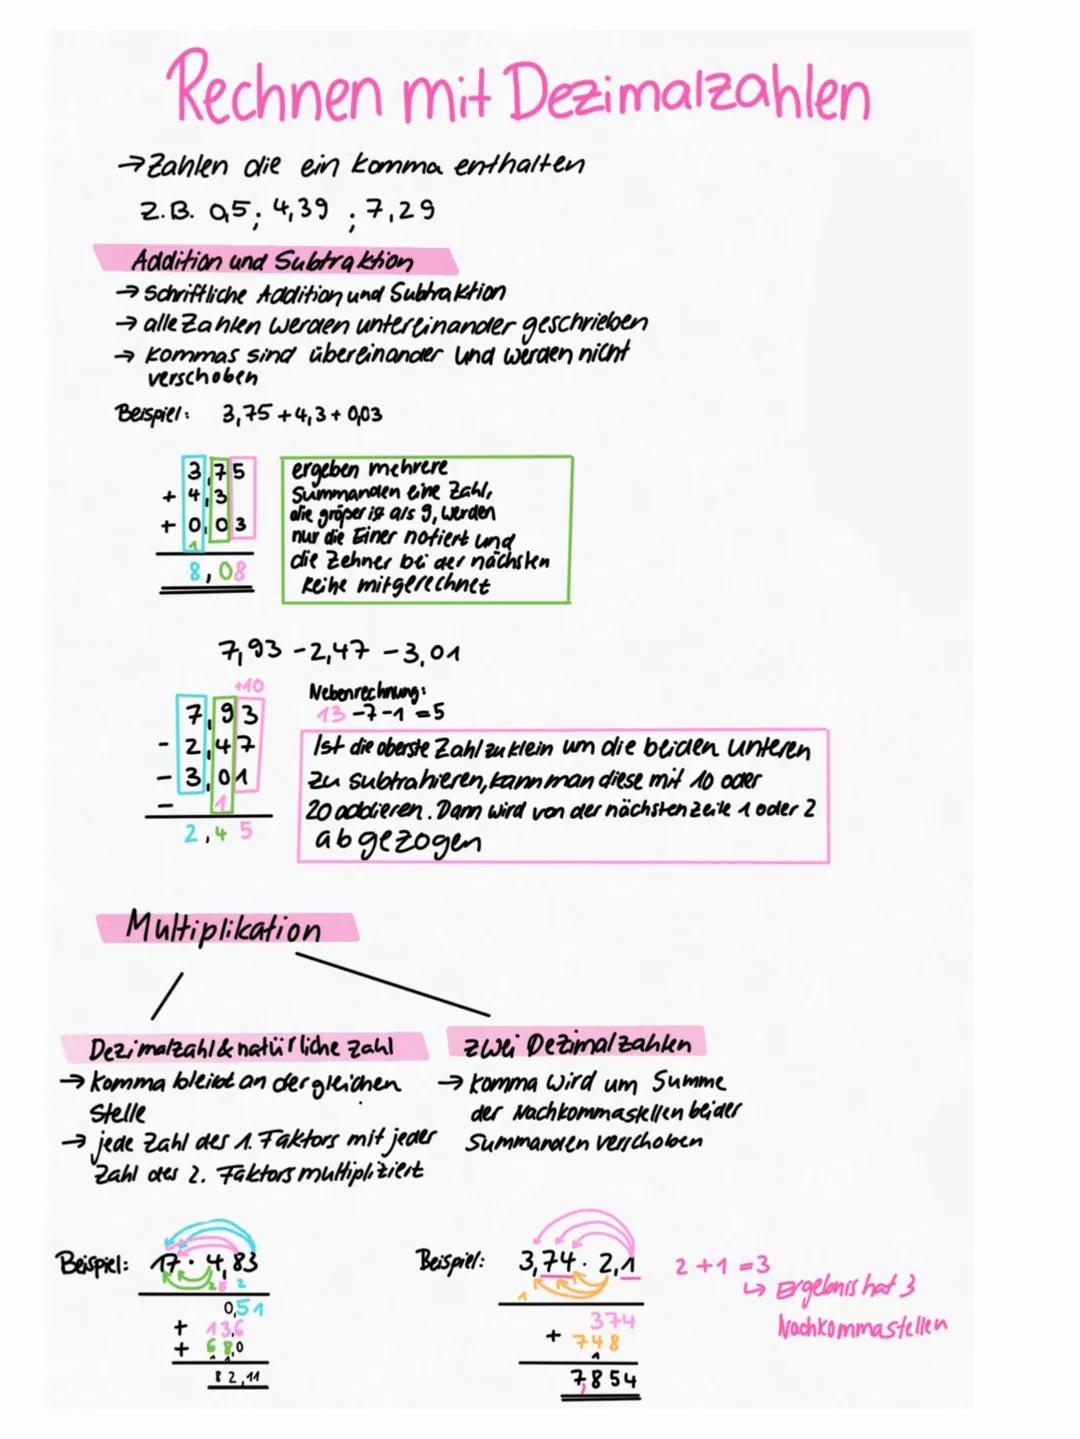 Rechnen mit Dezimalzahlen
→ Zahlen die ein Komma enthalten
z.B. 0,5; 4,39 ; 7,29
Addition und Subtraktion
→ schriftliche Addition und Subtraktion
→ alle Zahlen werden untereinander geschrieben
→ Kommas sind übereinander und werden nicht
verschoben
Beispiel: 3,75 + 4,3 + 0,03
3,75
+ 4,3
+ 0,03
1
8,08
ergeben mehrere
Summanden eine Zahl,
die größer ist als 9, werden
nur die Einer notiert und
die Zehner bei der nächsten
Reihe mitgerechnet
7,93 - 2,47 - 3,01
+10
7,93
- 2,47
- 3,01
- 1
2,45
Nebenrechnung:
13 - 7 - 1 = 5
Ist die oberste Zahl zu klein um die beiden unteren
zu subtrahieren, kann man diese mit 10 oder
20 addieren. Dann wird von der nächsten Zeile 1 oder 2
abgezogen
Multiplikation
Dezimalzahl & natürliche Zahl
→ Komma bleibt an der gleichen
Stelle
→ jede Zahl des 1. Faktors mit jeder
Zahl des 2. Faktors multipliziert
Beispiel: 17 · 4,83
2 5 2
0,51
+ 13,6
+ 68,0
1 1
82,11
zwei Dezimalzahlen
→ Komma wird um Summe
der Nachkommastellen beider
Summanden verschoben
Beispiel: 3,74 · 2,1
1
374
+ 748
1
7,854
2 + 1 = 3
↳ Ergebnis hat 3
Nachkommastellen